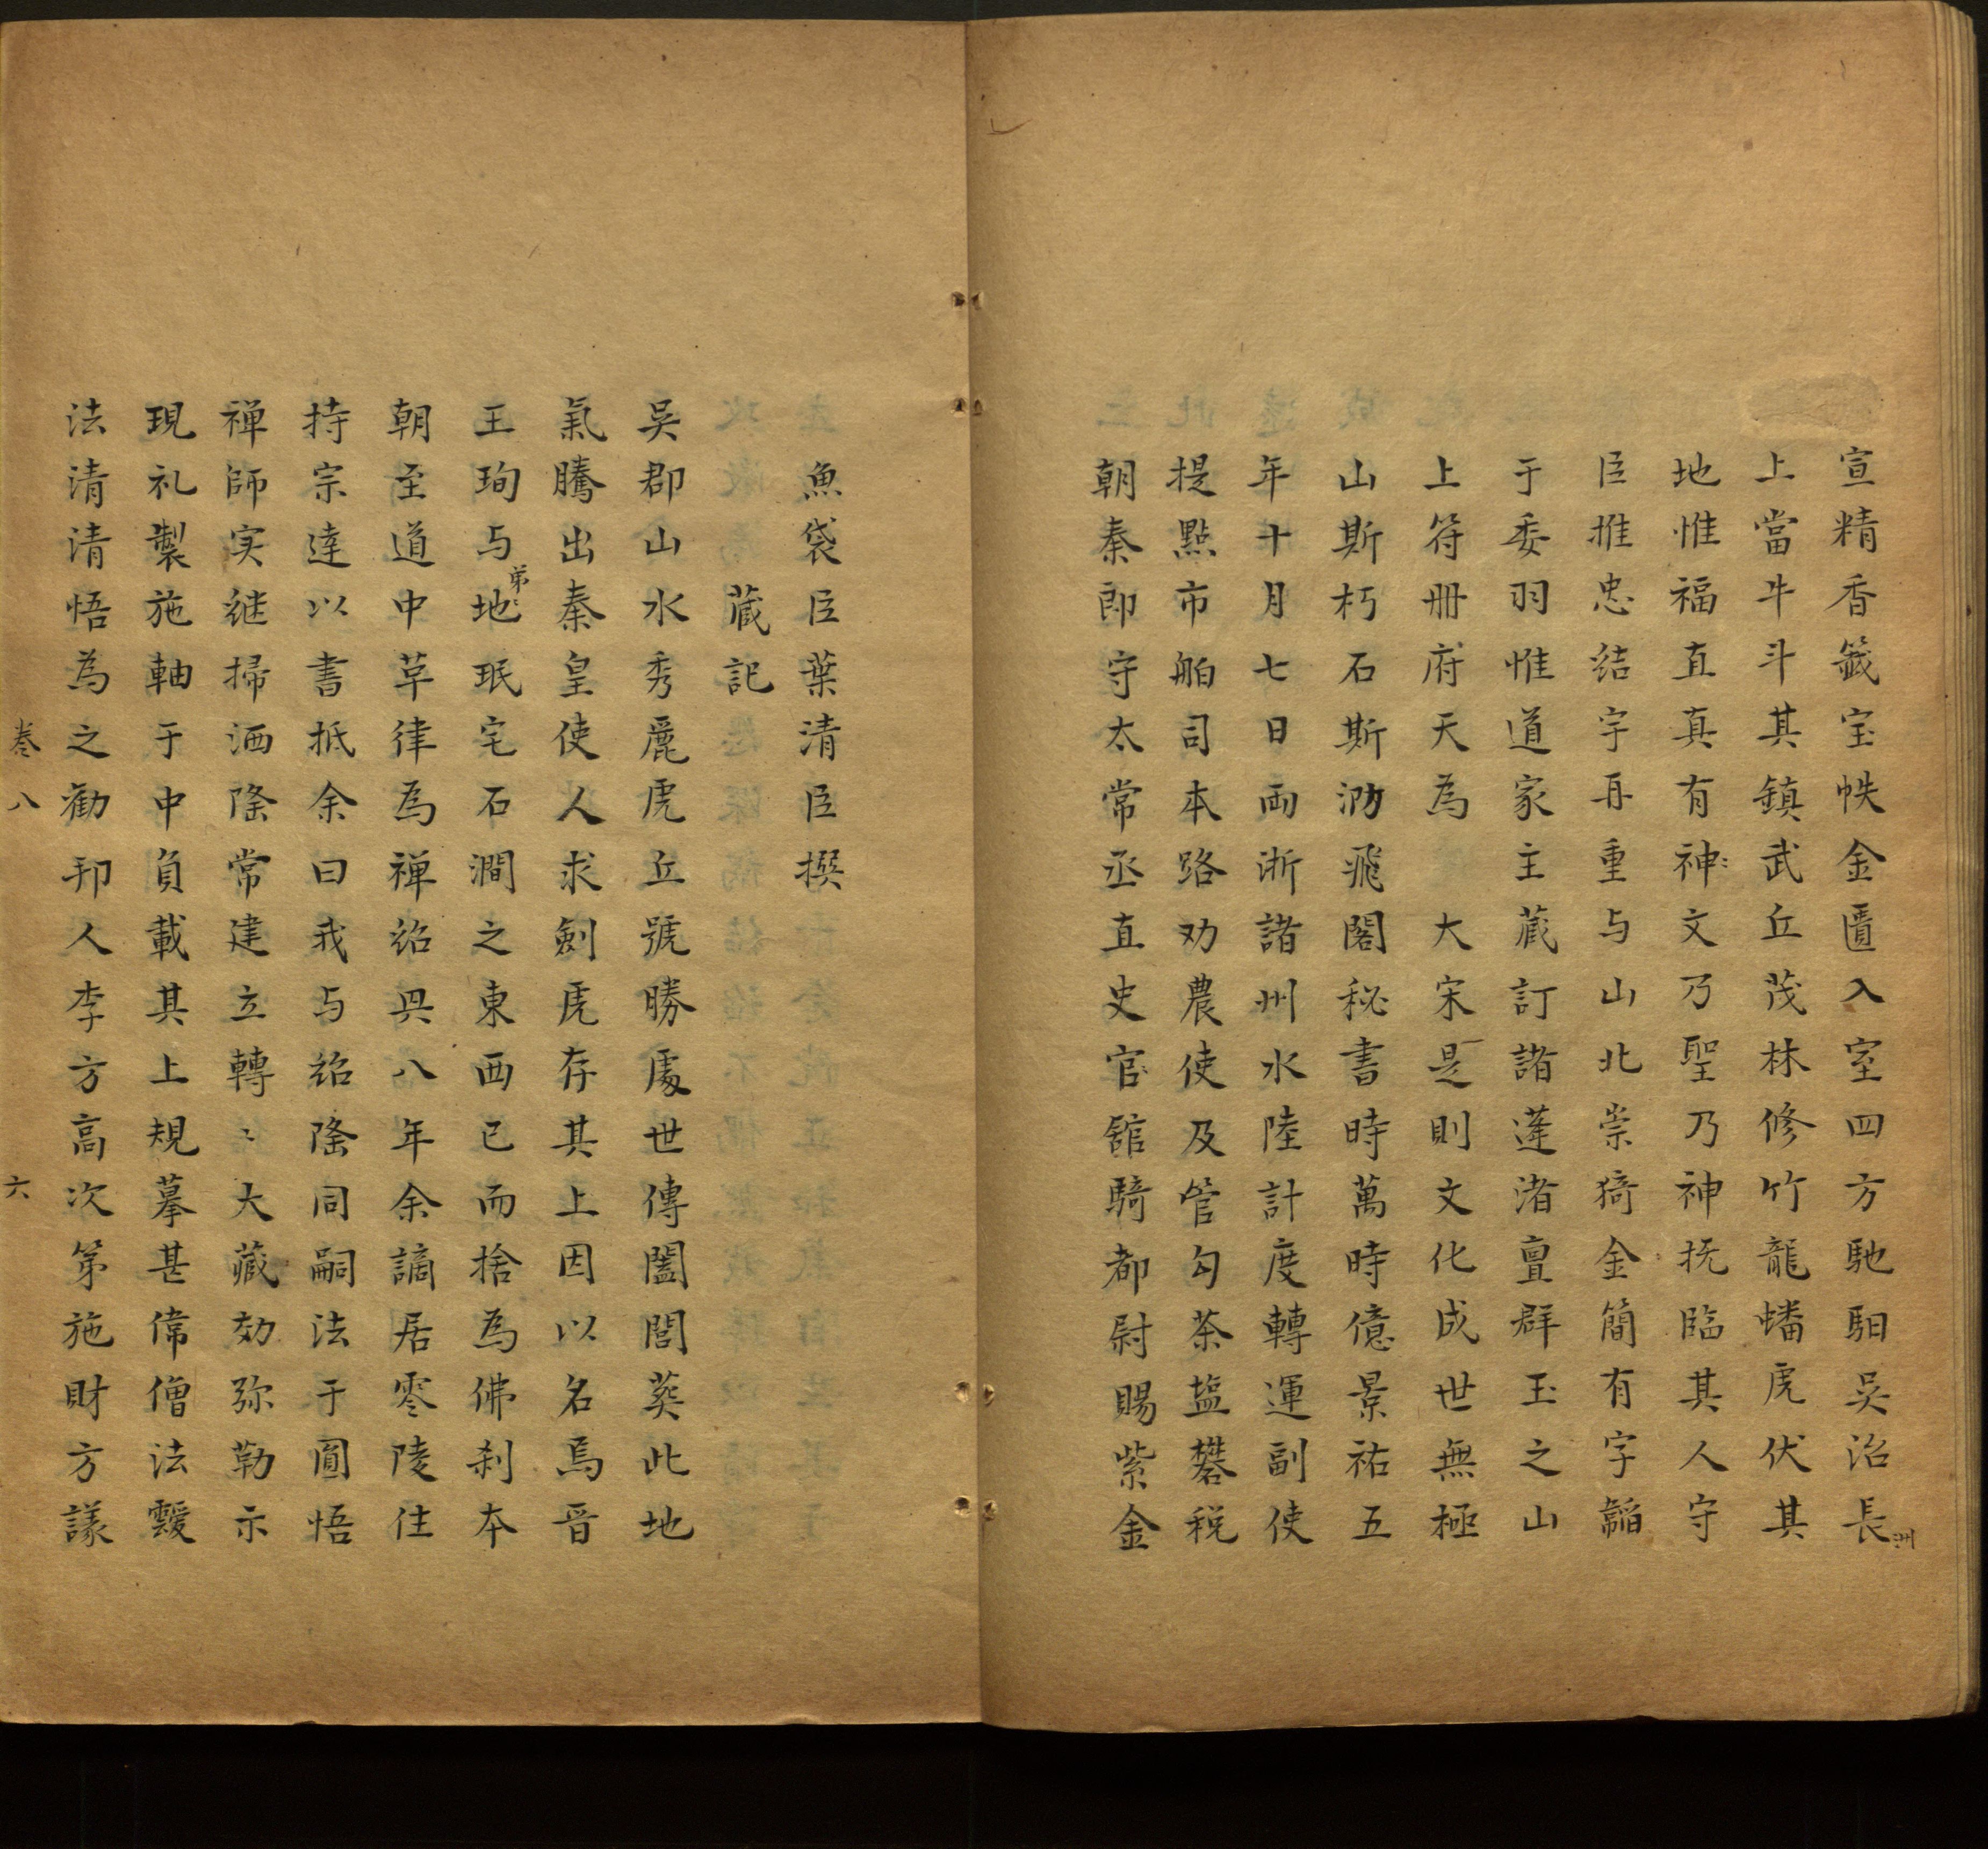 宣精香籖宝帙金匱入室四方馳馹吳沿長洲
上當牛斗其鎮武丘茂林修竹龍蟠虎伏其
地惟福直真有神神文乃聖乃神抚臨其人守
臣推忠结宇再重与山北崇猗金簡有字韜
于委羽惟道家主藏訂諸蓬渚亶群玉之山
上符冊府天為　大宋是則文化成世無極
山斯朽石斯泐飛閣秘書時萬時億景祐五
年十月七日両浙諸州水陸計度轉運副使
提㸃市舶司本路劝農使及管勾茶塩礬税
朝奏郎守太常丞直史官舘騎都尉賜紫金
魚袋臣葉清臣撰
藏記
吳郡山水秀麗虎丘號勝處世傳闔閭葵此地
氣騰出秦皇使人求劍虎存其上因以名焉晉
王珣与弟地珉宅石澗之東西已而捨為佛刹本
朝至道中草律為禅紹興八年余謫居零陵住
持宗達以書抵余曰我与紹隆同嗣法于圓悟
禅師実继掃洒隆常建立轉ミ大藏効弥勒示
現礼製施軸于中負載其上規摹甚偉僧法靉
法清清悟為之勸邦人李方高次第施財方議
卷八　六